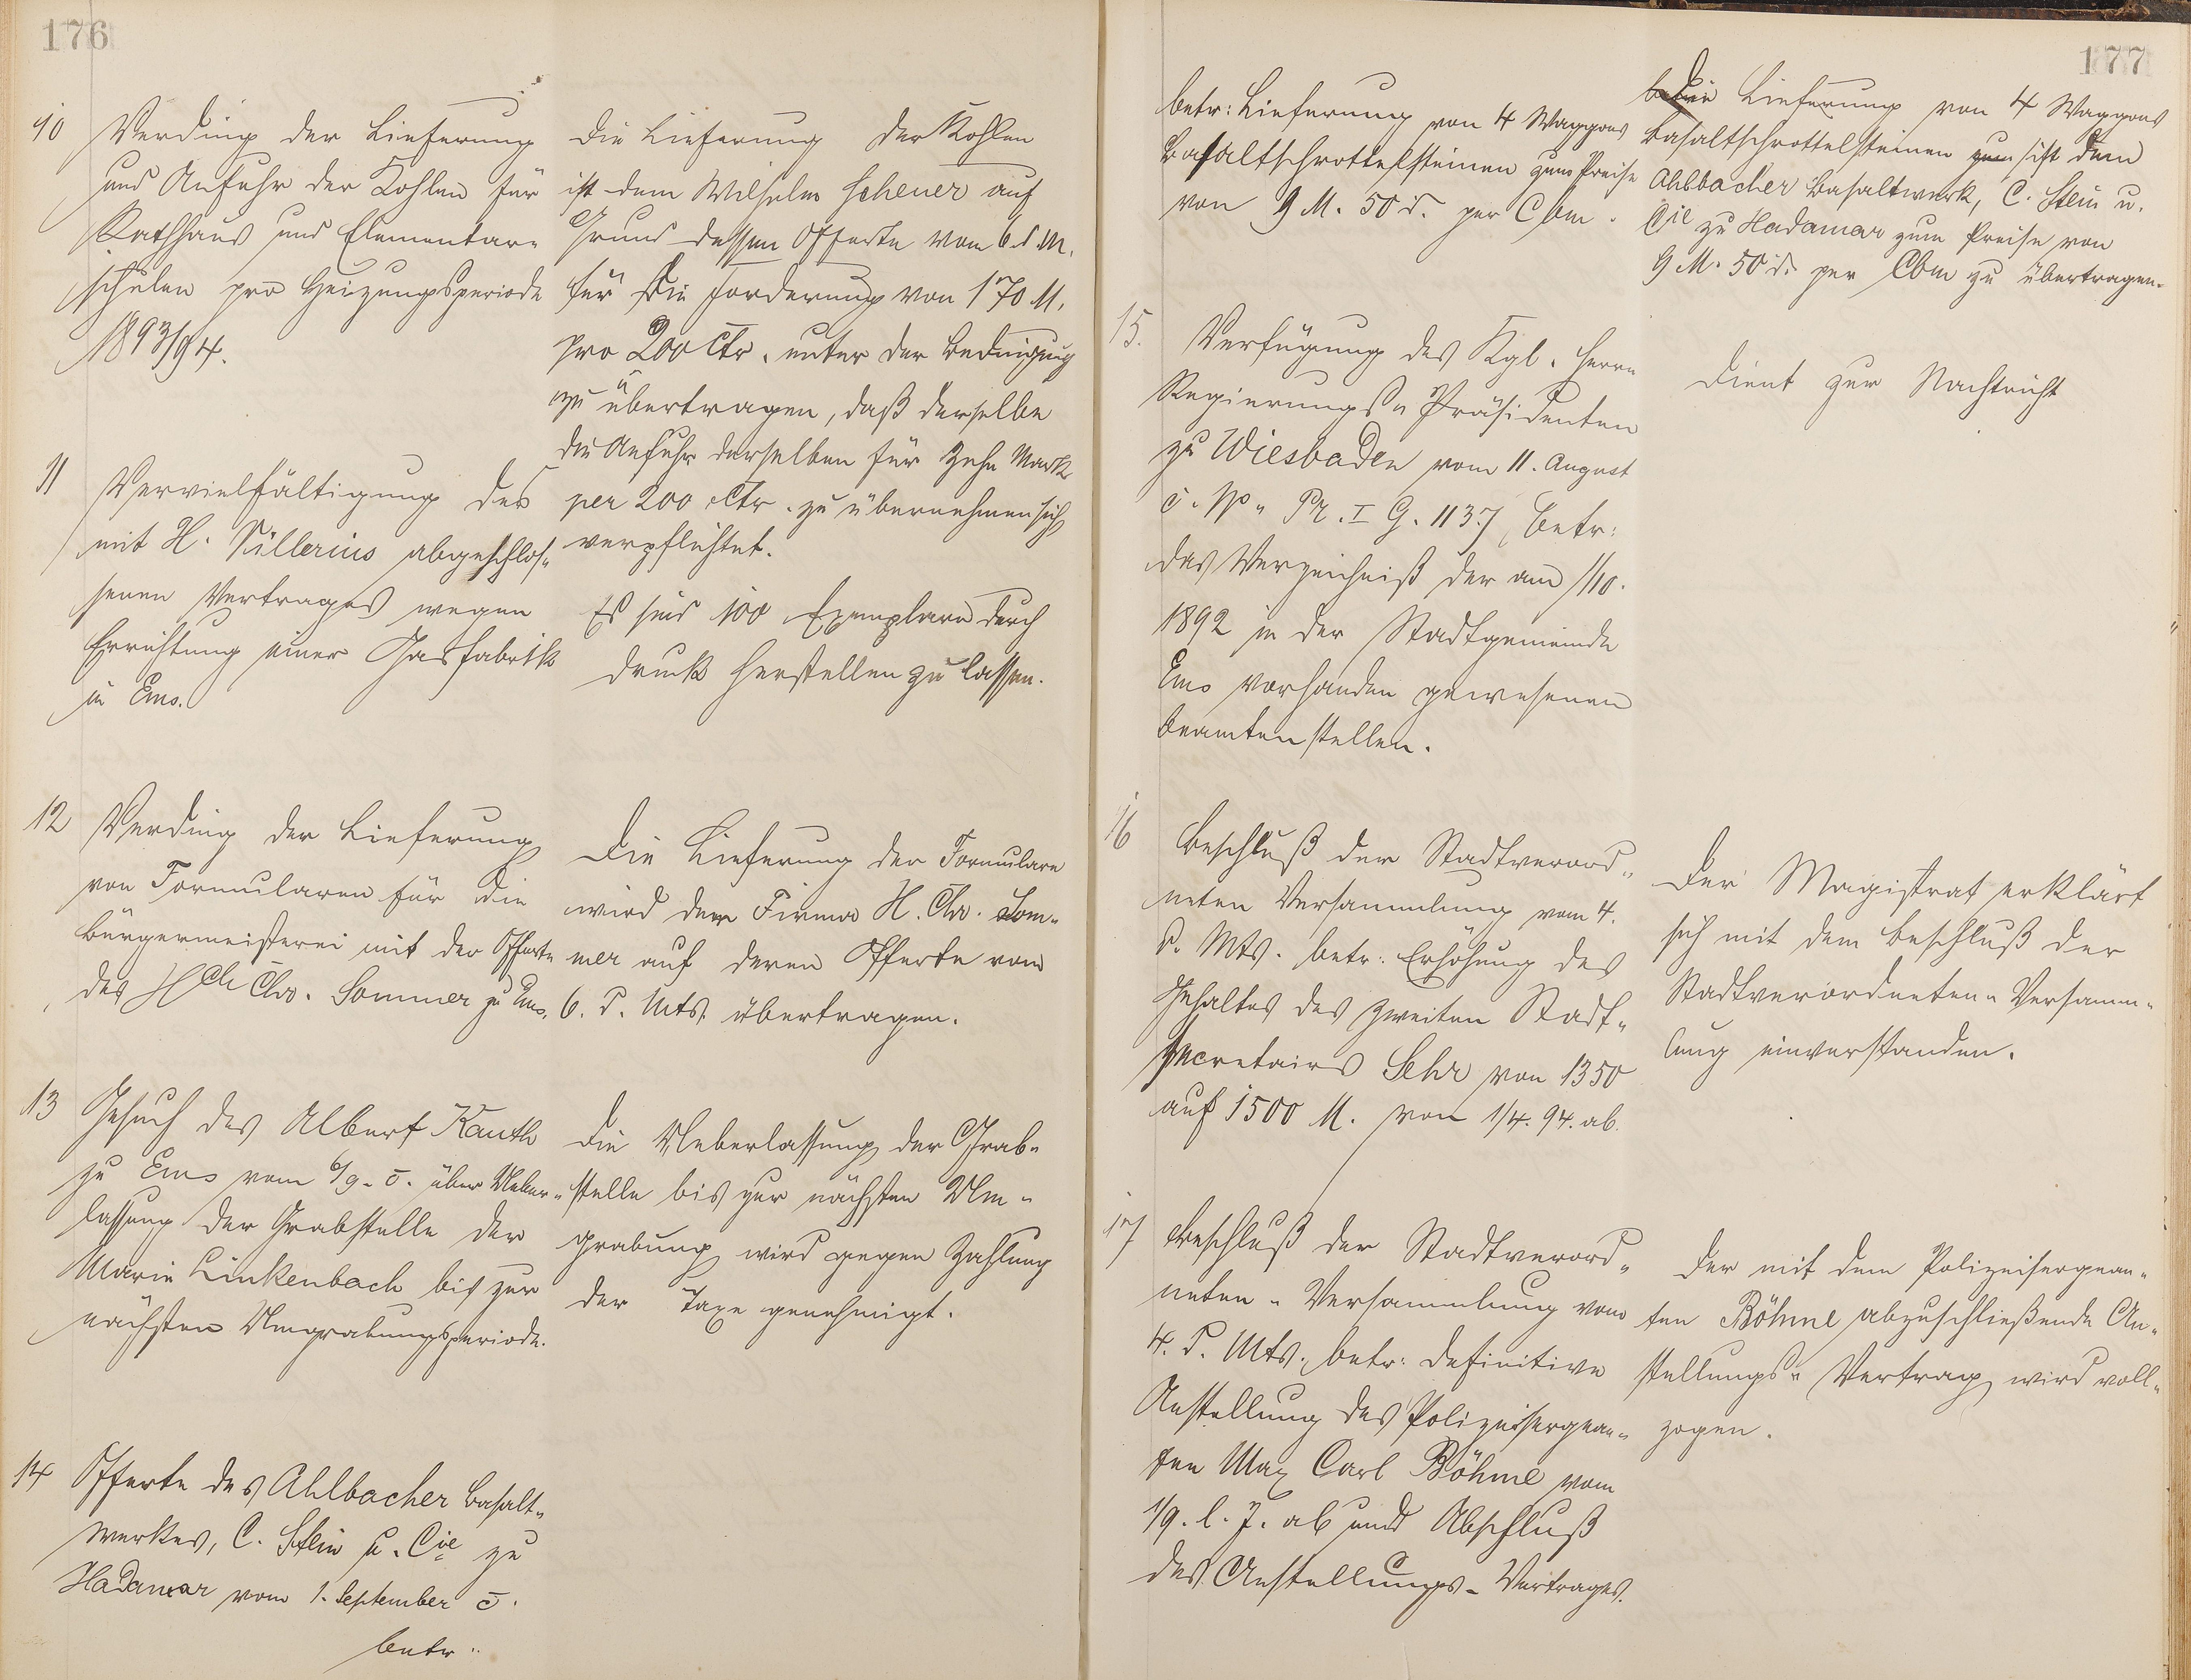 176
10 Verding der Lieferung
und Anfuhr der Kohlen für
Rathhaus und Elementar-
schulen pro Heizungsperiode
1893/94.
Die Lieferung der Kohlen
ist dem Wilhelm Scheuer auf
Grund dessen Offerte vom 6. d. M.
für die Forderung von 170 M.
pro 200 Ctr. unter der Bedingung
zu übertragen, daß derselbe
die Anfuhr derselben für zehn Mark
per 200 Ctr. zu übernehmen sich
verpflichtet.
11 Vervielfältigung des
mit H. Sillerius abgeschlos-
senen Vertrages wegen
Errichtung einer Gasfabrik
in Ems.
Es sind 100 Exemplare durch
Druck herstellen zu lassen.
12 Verding der Lieferung
von Formularen für die
Bürgermeisterei mit der Offerte
des Hch Chr. Sommer zu Ems.
Die Lieferung der Formulare
wird der Firma H. Chr. Som-
mer auf deren Offerte vom
6. d. Mts. übertragen.
13 Gesuch des Albert Kauth
zu Ems vom 6/9. c. über Ueber-
lassung der Grabstelle der
Marie Linkenbach bis zur
nächsten Umgrabungsperiode.
Die Ueberlassung der Grab-
stelle bis zur nächsten Um-
grabung wird gegen Zahlung
der Taxe genehmigt.
14 Offerte des Ahlbacher Basalt-
werkes, C. Stein u. Cie zu
Hadamar vom 1. September c.
betr.
177
betr: Lieferung von 4 Waggons
Basaltschrottelsteinen zum Preise
von 9 M. 50 d. per Cbm.
Die Lieferung von 4 Waggons
Basaltschrottelsteinen zum ist dem
Ahlbacher Basaltwerk, C. Stein u.
Cie zu Hadamar zum Preise von
9 M. 50 d. per Cbm zu übertragen.
15. Verfügung des Kgl. Herrn
Regierungs-Präsidenten
zu Wiesbaden vom 11. August
c. Pr. I G. 1137, betr:
das Verzeichniß der am 1/10.
1892 in der Stadtgemeinde
Ems vorhanden gewesenen
Beamtenstellen.
Dient zur Nachricht
16 Beschluß der Stadtverord-
neten Versammlung vom 4.
d. Mts. betr: Erhöhung des
Gehaltes des zweiten Stadt-
secretairs Sehr von 1350
auf 1500 M. von 1/4. 94. ab.
Der Magistrat erklärt
sich mit dem Beschluß der
Stadtverordneten-Versamm-
lung einverstanden.
17 Beschluß der Stadtverord-
neten-Versammlung vom
4. d. Mts. betr: definitive
Anstellung des Polizeisergean-
ten Max Carl Böhme vom
1/9. l. J. ab und Abschluß
des Anstellungs-Vertrages.
Der mit dem Polizeisergean-
ten Böhme abzuschließende An-
stellungs-Vertrag wird voll-
zogen.